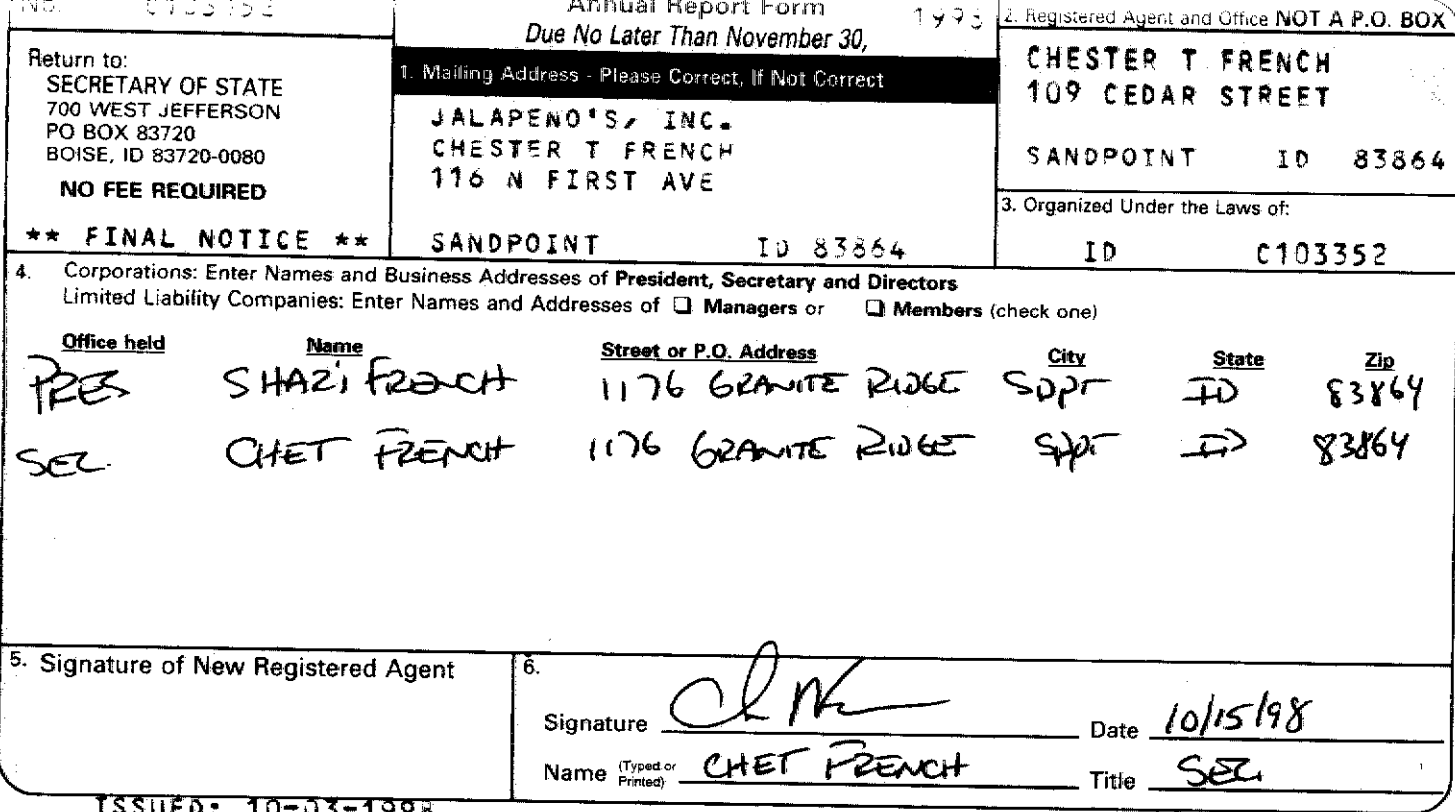 No. C103352
Annual Report Form 1998
Due No Later Than November 30,
Return to:
SECRETARY OF STATE
700 WEST JEFFERSON
PO BOX 83720
BOISE, ID 83720-0080
NO FEE REQUIRED
** FINAL NOTICE **
1. Mailing Address - Please Correct, If Not Correct
JALAPENO'S, INC.
CHESTER T FRENCH
116 N FIRST AVE
SANDPOINT ID 83864
2. Registered Agent and Office NOT A P.O. BOX
CHESTER T FRENCH
109 CEDAR STREET
SANDPOINT ID 83864
3. Organized Under the Laws of:
ID C103352
4. Corporations: Enter Names and Business Addresses of President, Secretary and Directors
Limited Liability Companies: Enter Names and Addresses of ❑ Managers or ❑ Members (check one)
Office held Name Street or P.O. Address City State Zip
PRES SHARI FRENCH 1176 GRANITE RIDGE SDPT ID 83864
SEC. CHET FRENCH 1176 GRANITE RIDGE SDPT ID 83864
5. Signature of New Registered Agent
6.
Signature Date 10/15/98
Name (Typed or Printed) CHET FRENCH Title SEC.
ISSUED: 10-03-1998